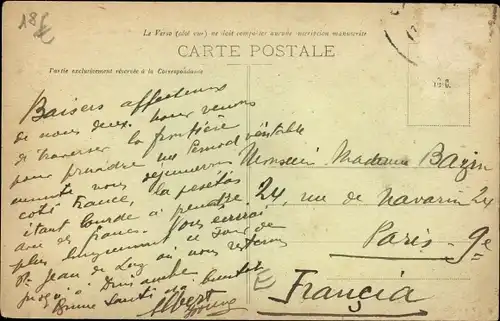 18 E
Le Verso (côté vue) ne doit comporter aucune inscription manuscrite
CARTE POSTALE
Partie exclusivement réservée à la Correspondance
Baisers affectueux
de nous deux, nous venons
de traverser la frontière
pour prendre un Pernod véritable
nous déjeunerons
coté France, la pesetas
étant lourde à
des francs. Vous écrirai
plus longuement ce soir de
St Jean de Luz où nous restons
Dimanche
Bonne Santé
Albert
Monsieur Madame Bazin
24, rue de Navarin 24
Paris - 9e
Francia
E